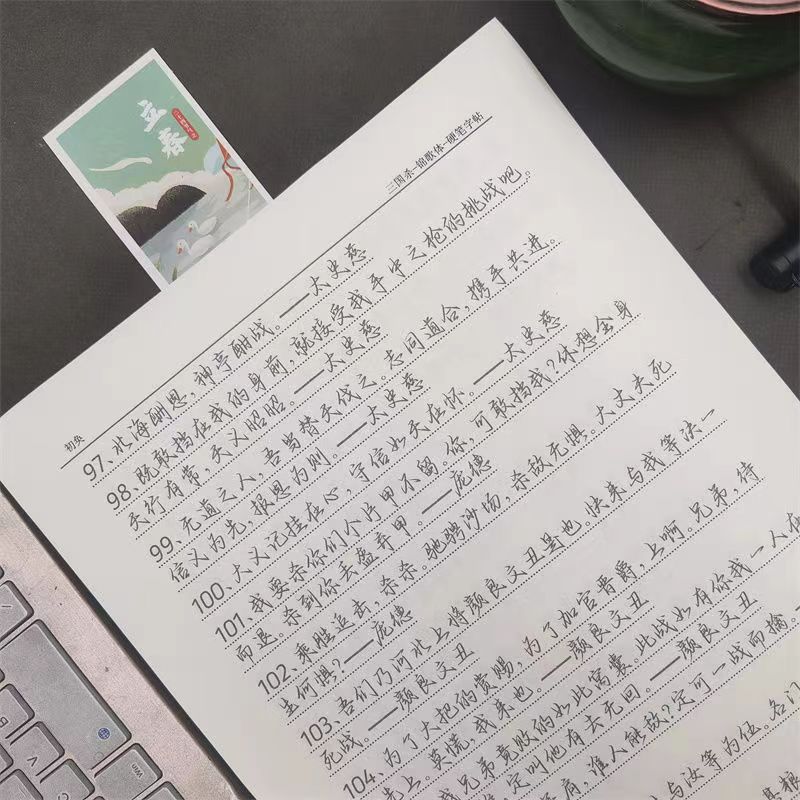 立春
三国杀-锦歌体-硬笔字帖
初央
97、北海酬恩，神亭酣战。——太史慈
98、既敢挡在我的身前，就接受我手中之枪的挑战吧。
天行有常，天义昭昭。——太史慈
99、无道之人，吾当替天伐之。志同道合，携手共进。
信义为先，报恩为则。——太史慈
100、大义记挂在心，守信如天在怀。——太史慈
101、我要杀你们个片甲不留。你，可敢挡我？休想全身
而退。杀到你丢盔弃甲。——庞德
102、乘胜追击，杀。驰骋沙场，杀敌无惧。大丈夫死
生何惧？——庞德
103、吾们乃河北上将颜良文丑是也。快来与我等决一
死战。——颜良文丑
104、为了大把的赏赐，为了加官晋爵，上啊。兄弟，待
先上。莫慌，我来也。——颜良文丑
我兄弟竟败的如此窝囊。此战如有你我一人在
定叫他有去无回。——颜良文丑
肩，谁人能敌？定可一战而擒。
与汝等为伍。名门
Win
Alt